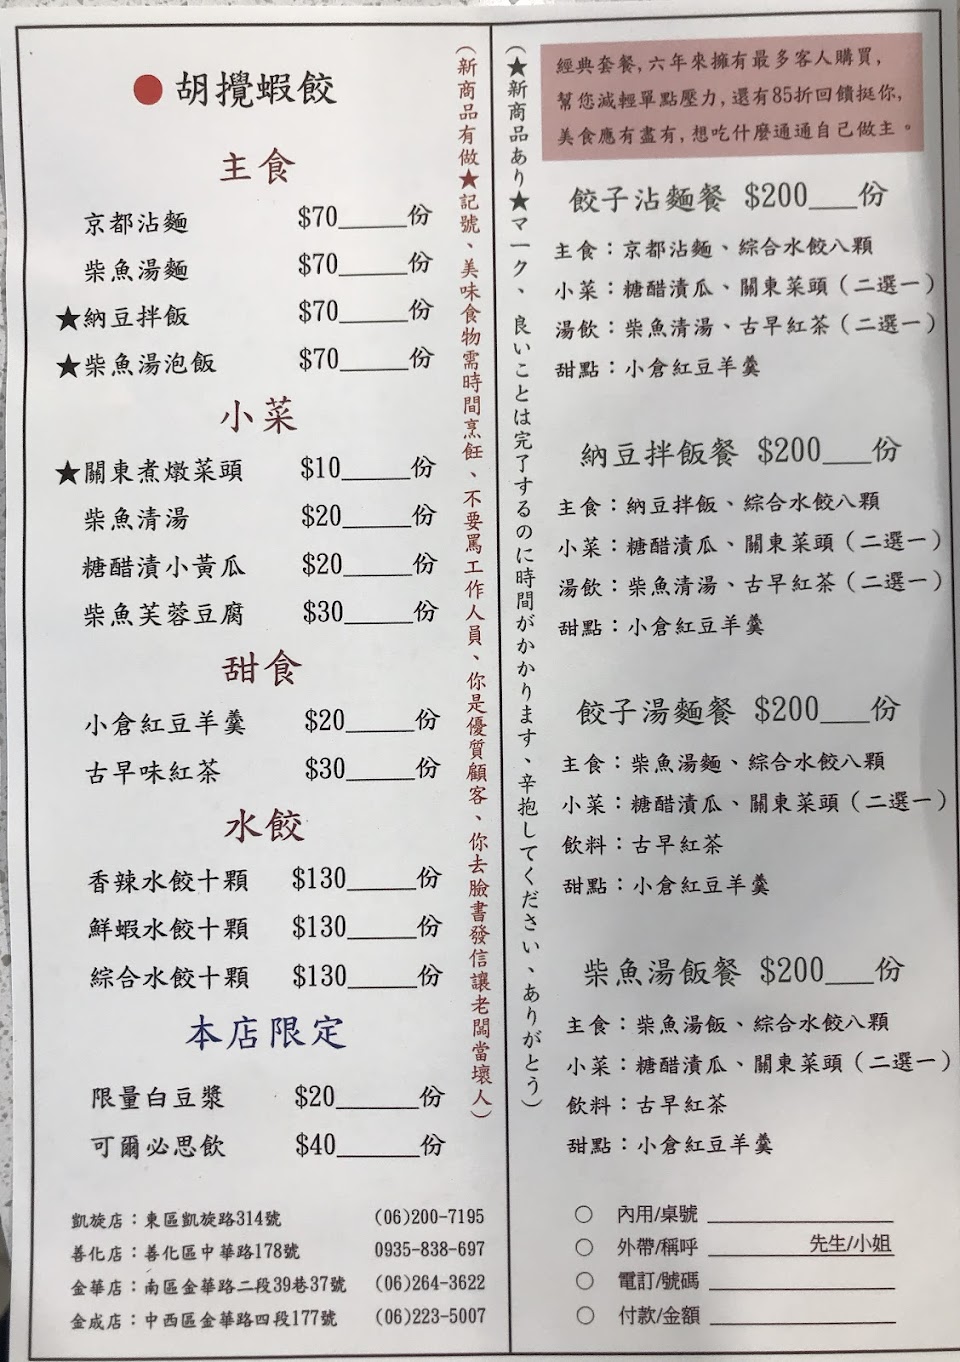 胡攪蝦餃
主食
京都沾麵 $70______份
柴魚湯麵 $70______份
★納豆拌飯 $70______份
★柴魚湯泡飯 $70______份
小菜
★關東煮燉菜頭 $10______份
柴魚清湯 $20______份
糖醋漬小黃瓜 $20______份
柴魚芙蓉豆腐 $30______份
甜食
小倉紅豆羊羹 $20______份
古早味紅茶 $30______份
水餃
香辣水餃十顆 $130______份
鮮蝦水餃十顆 $130______份
綜合水餃十顆 $130______份
本店限定
限量白豆漿 $20______份
可爾必思飲 $40______份
凱旋店：東區凱旋路314號 (06)200-7195
善化店：善化區中華路178號 0935-838-697
金華店：南區金華路二段39巷37號 (06)264-3622
金成店：中西區金華路四段177號 (06)223-5007
（新商品有做★記號、美味食物需時間烹飪、不要罵工作人員、你是優質顧客、你去臉書發信讓老闆當壞人）
（★新商品あり★マーク、良いことは完了するのに時間がかかります、辛抱してください、ありがとう）
經典套餐,六年來擁有最多客人購買,
幫您減輕單點壓力,還有85折回饋挺你,
美食應有盡有,想吃什麼通通自己做主。
餃子沾麵餐 $200___份
主食：京都沾麵、綜合水餃八顆
小菜：糖醋漬瓜、關東菜頭（二選一）
湯飲：柴魚清湯、古早紅茶（二選一）
甜點：小倉紅豆羊羹
納豆拌飯餐 $200___份
主食：納豆拌飯、綜合水餃八顆
小菜：糖醋漬瓜、關東菜頭（二選一）
湯飲：柴魚清湯、古早紅茶（二選一）
甜點：小倉紅豆羊羹
餃子湯麵餐 $200___份
主食：柴魚湯麵、綜合水餃八顆
小菜：糖醋漬瓜、關東菜頭（二選一）
飲料：古早紅茶
甜點：小倉紅豆羊羹
柴魚湯飯餐 $200___份
主食：柴魚湯飯、綜合水餃八顆
小菜：糖醋漬瓜、關東菜頭（二選一）
飲料：古早紅茶
甜點：小倉紅豆羊羹
○ 內用/桌號 ______
○ 外帶/稱呼 ______先生/小姐
○ 電訂/號碼 ______
○ 付款/金額 ______